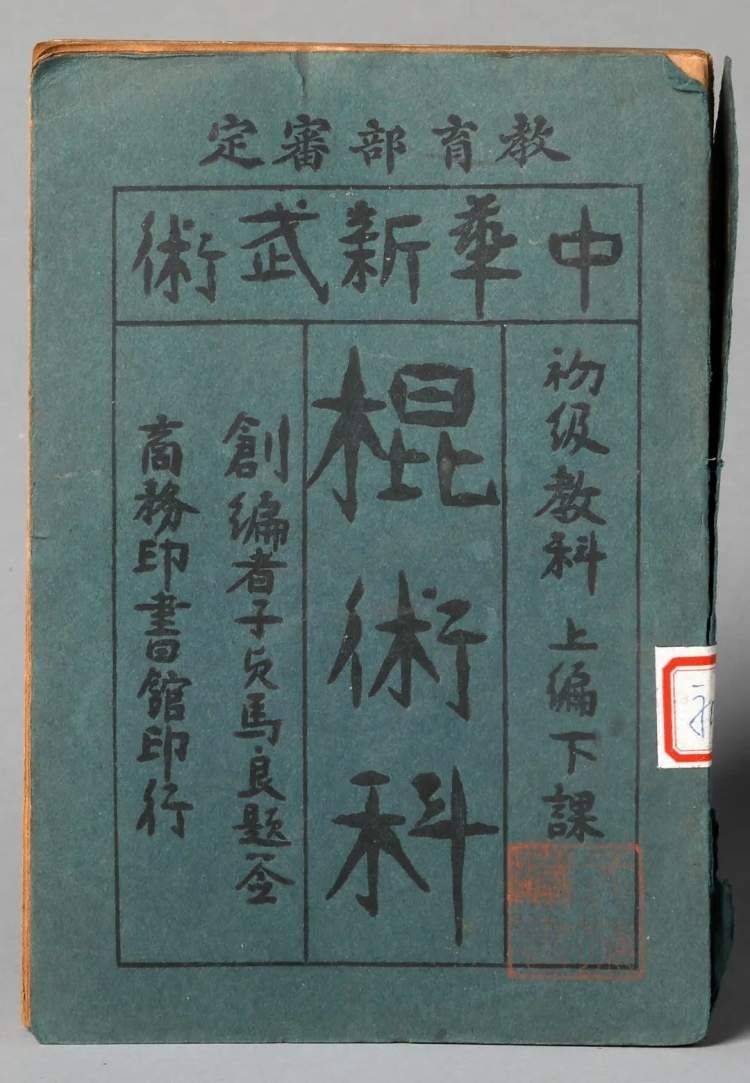 教育部審定
中華新武術
初級教科 上編下課
棍術科
創編者子貞馬良題簽
商務印書館印行